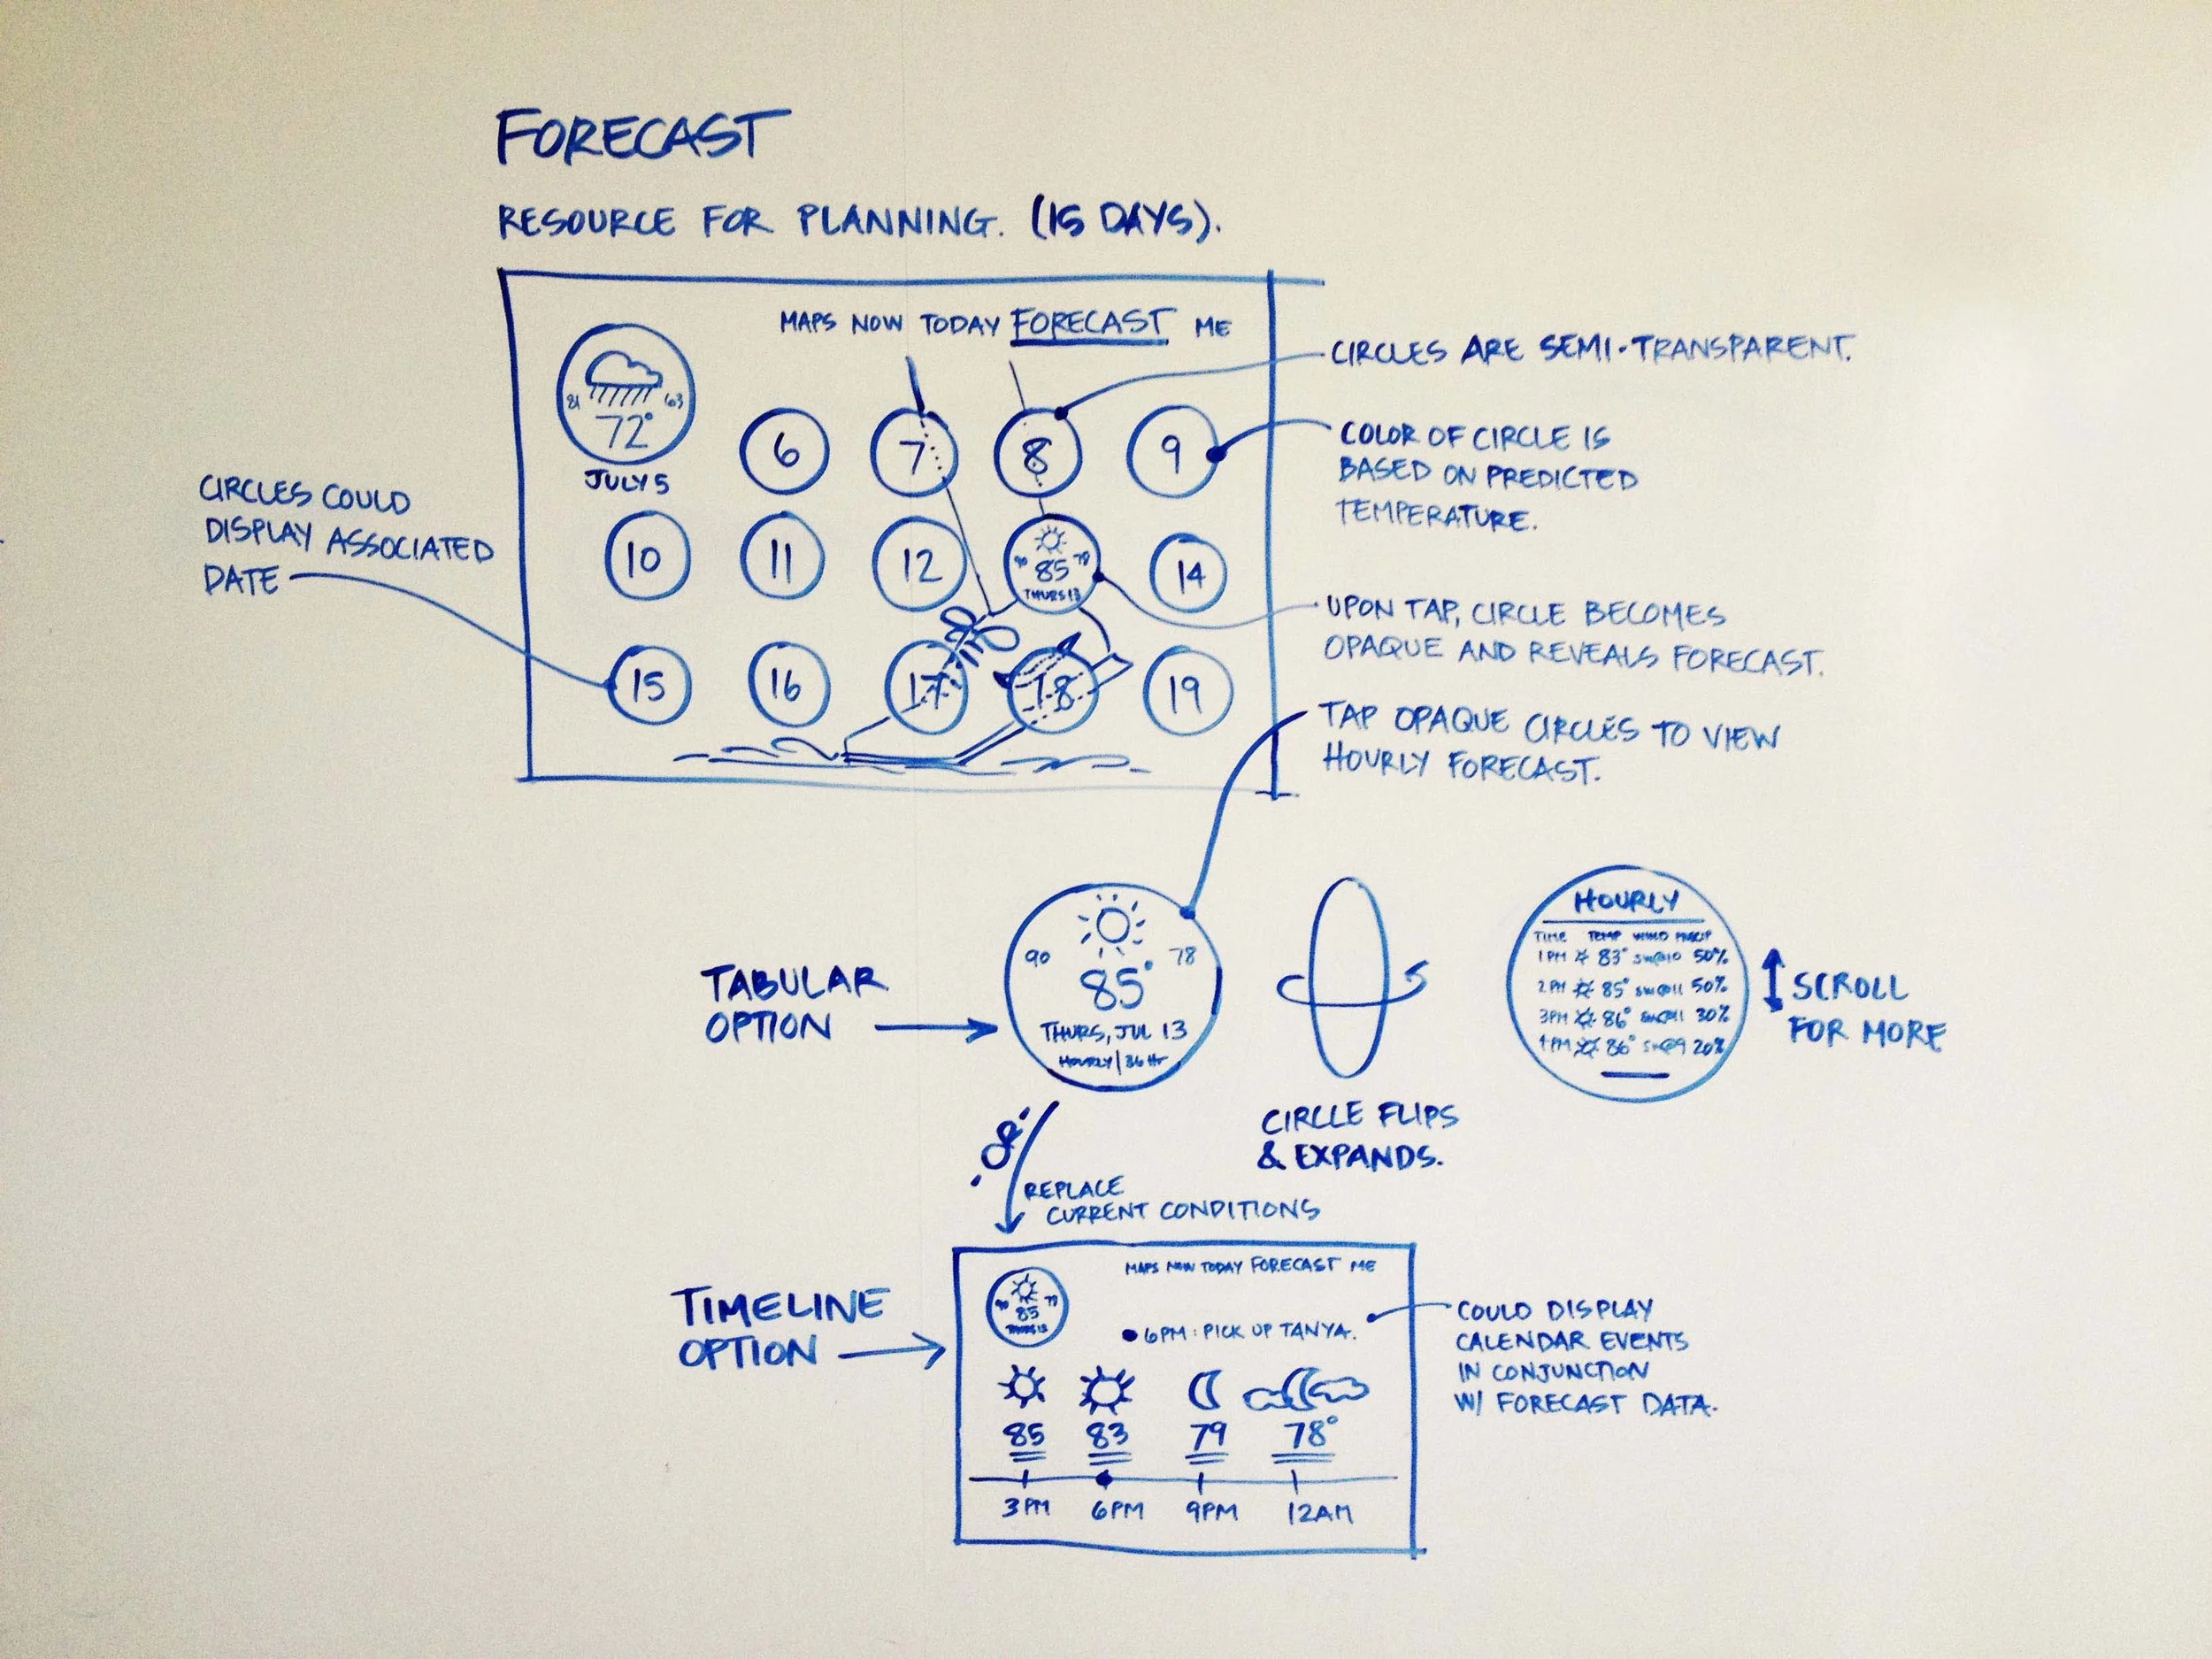 FORECAST
RESOURCE FOR PLANNING. (15 DAYS).
MAPS NOW TODAY FORECAST ME
81 63
72°
JULY 5
6 7 8 9
10 11 12
90 78
85
THURS 13
14
15 16 17 18 19
CIRCLES COULD
DISPLAY ASSOCIATED
DATE
CIRCLES ARE SEMI-TRANSPARENT.
COLOR OF CIRCLE IS
BASED ON PREDICTED
TEMPERATURE.
UPON TAP, CIRCLE BECOMES
OPAQUE AND REVEALS FORECAST.
TAP OPAQUE CIRCLES TO VIEW
HOURLY FORECAST.
TABULAR
OPTION
90 78
85°
THURS, JUL 13
HOURLY | 36 Hr
CIRCLE FLIPS
& EXPANDS.
HOURLY
TIME TEMP WIND PRECIP
1PM 83° SW@10 50%
2PM 85° SW@11 50%
3PM 86° SW@11 30%
4PM 86° SW@9 20%
SCROLL
FOR MORE
·OR·
REPLACE
CURRENT CONDITIONS
TIMELINE
OPTION
MAPS NOW TODAY FORECAST ME
90
85
THURS 13
6PM: PICK UP TANYA.
85 83 79 78°
3PM 6PM 9PM 12AM
COULD DISPLAY
CALENDAR EVENTS
IN CONJUNCTION
W/ FORECAST DATA.